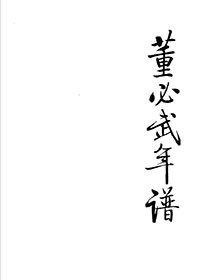 董必武年谱